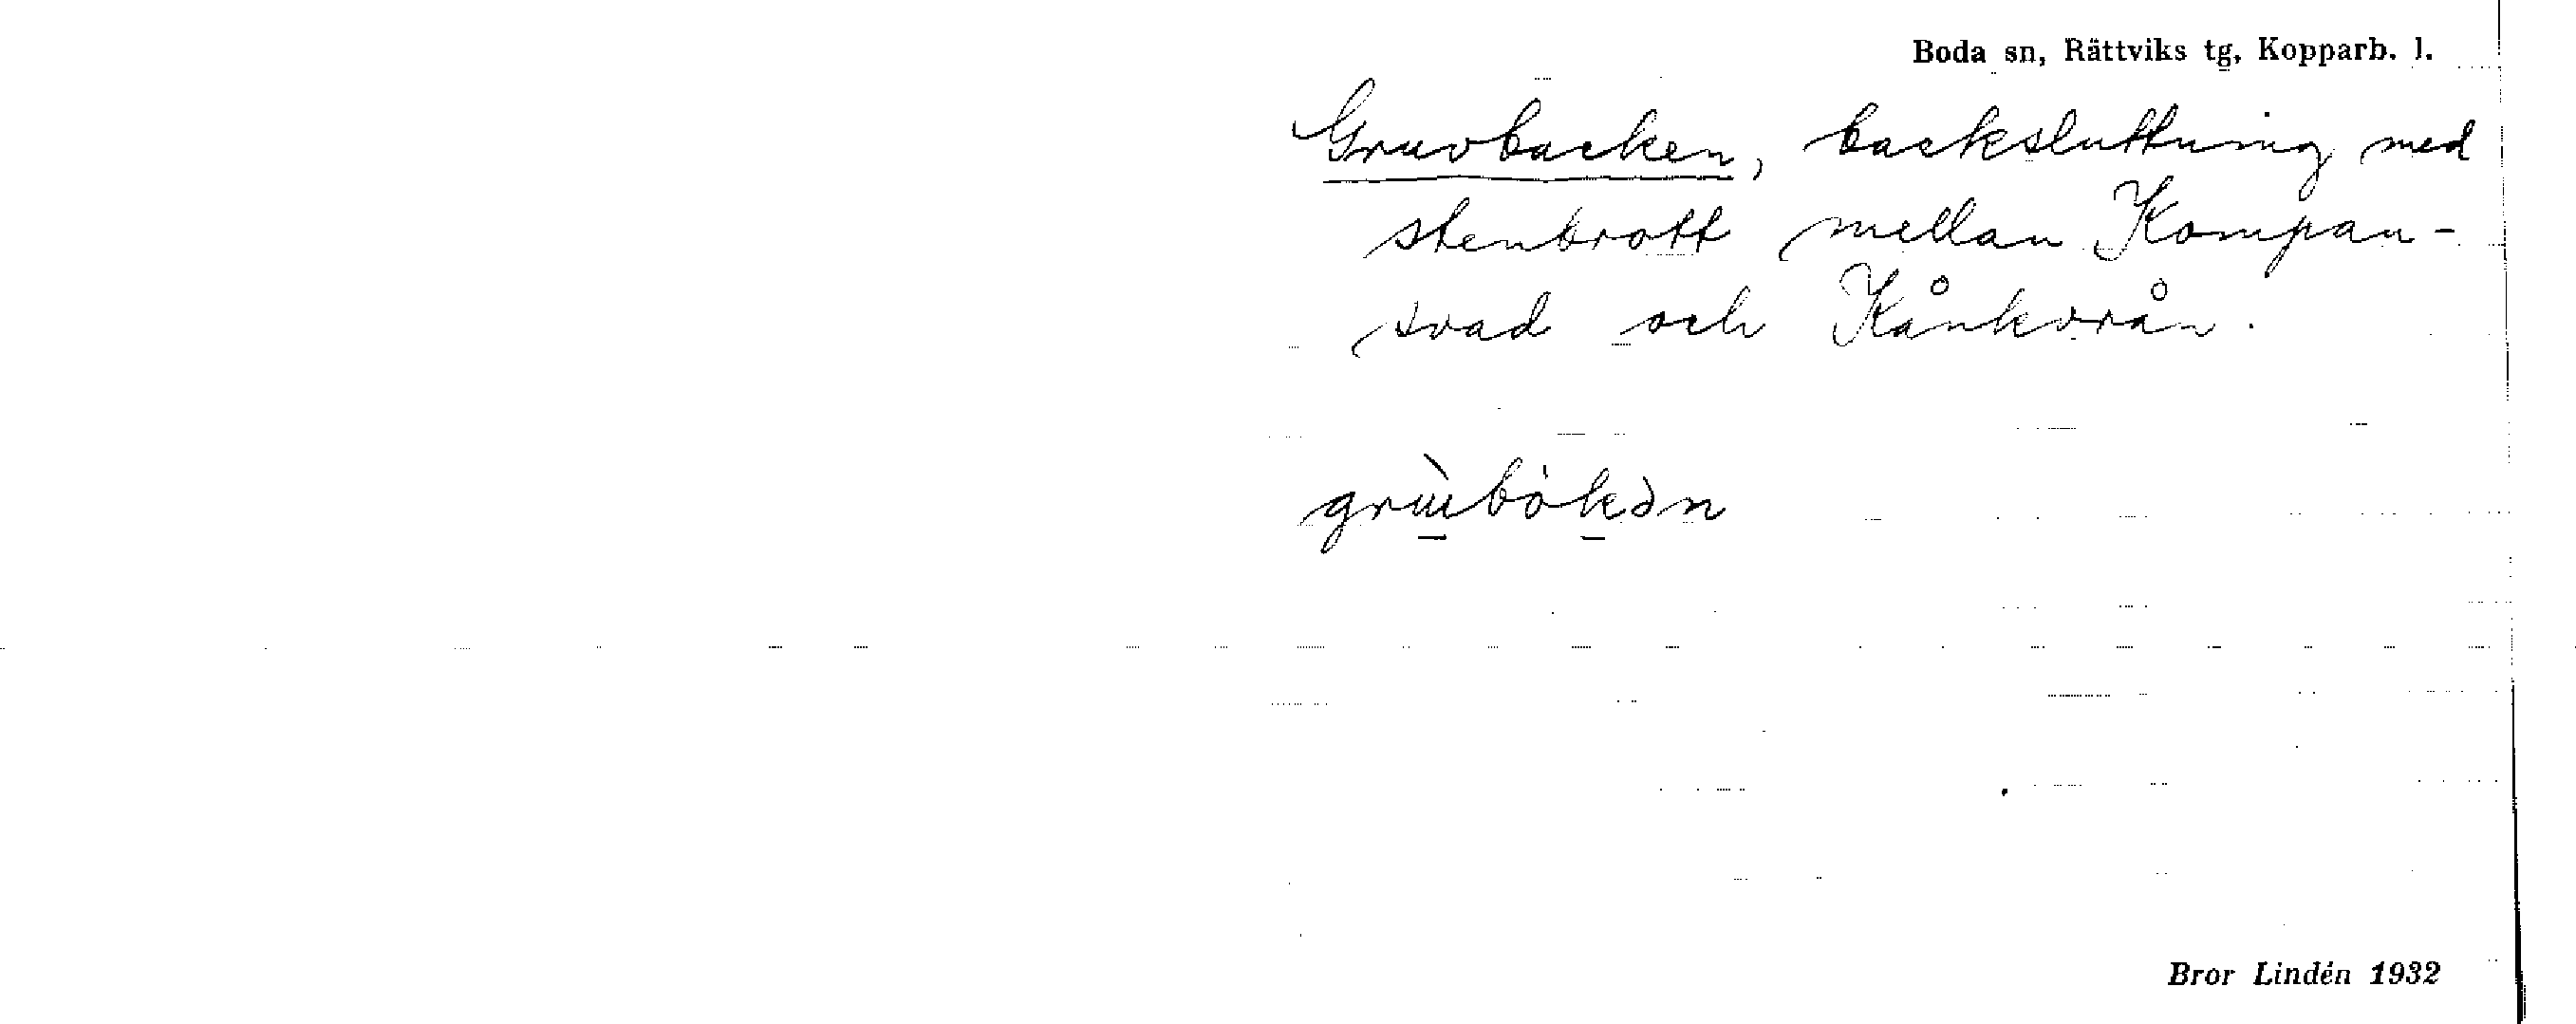 Boda sn, Rättviks tg, Kopparb. l.
Gruvbacken, backsluttning med
stenbrott mellan Kompan-
svad och Kånkvrån.
grùibòkən
Bror Lindén 1932